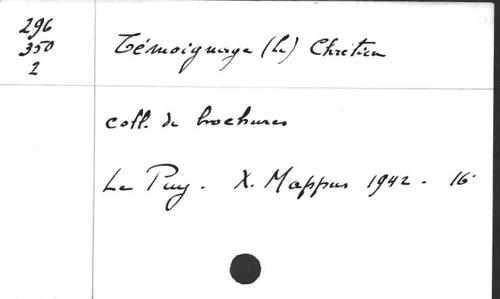 296
350
2
Témoignage (le) Chrétien
coll. de brochures
Le Puy. X. Mappus 1942 - 16°